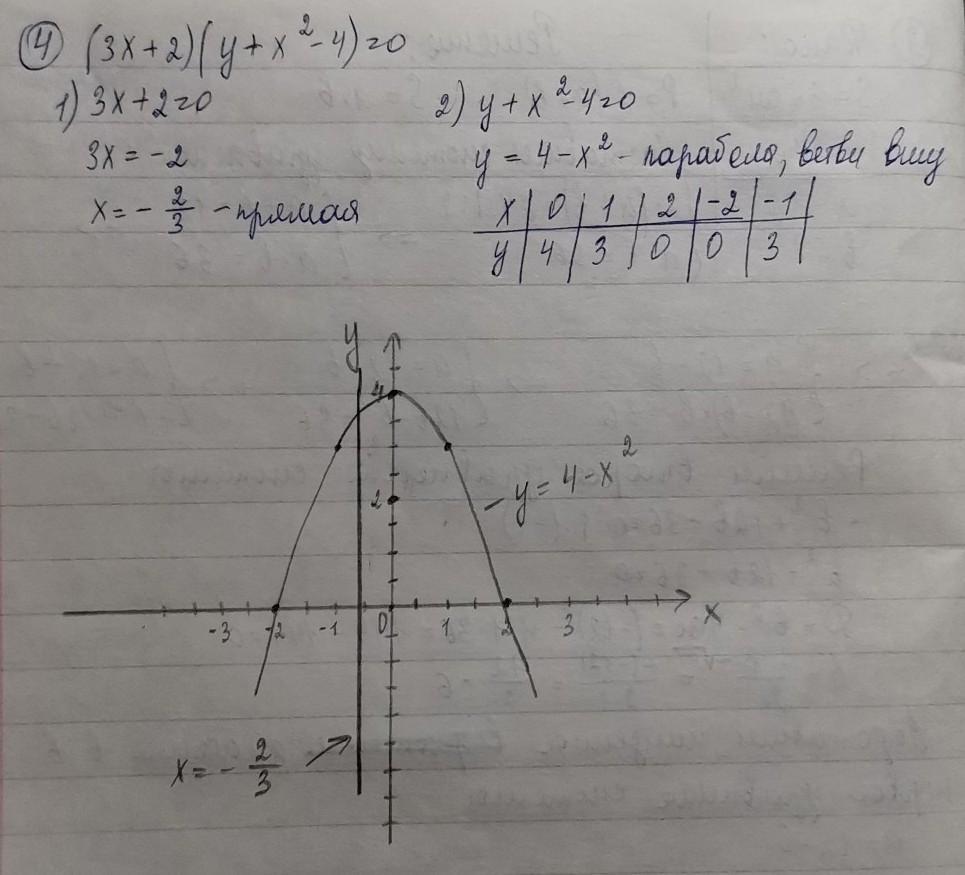 ④ (3x+2)(y+x²-4)=0
1) 3x+2=0
3x = -2
x = - 2/3 - прямая
2) y+x²-4=0
y = 4-x² - парабола, ветви вниз
x | 0 | 1 | 2 | -2 | -1 |
y | 4 | 3 | 0 | 0 | 3 |
y
4
2
y = 4-x²
-3 -2 -1 0 1 2 3 x
x = - 2/3